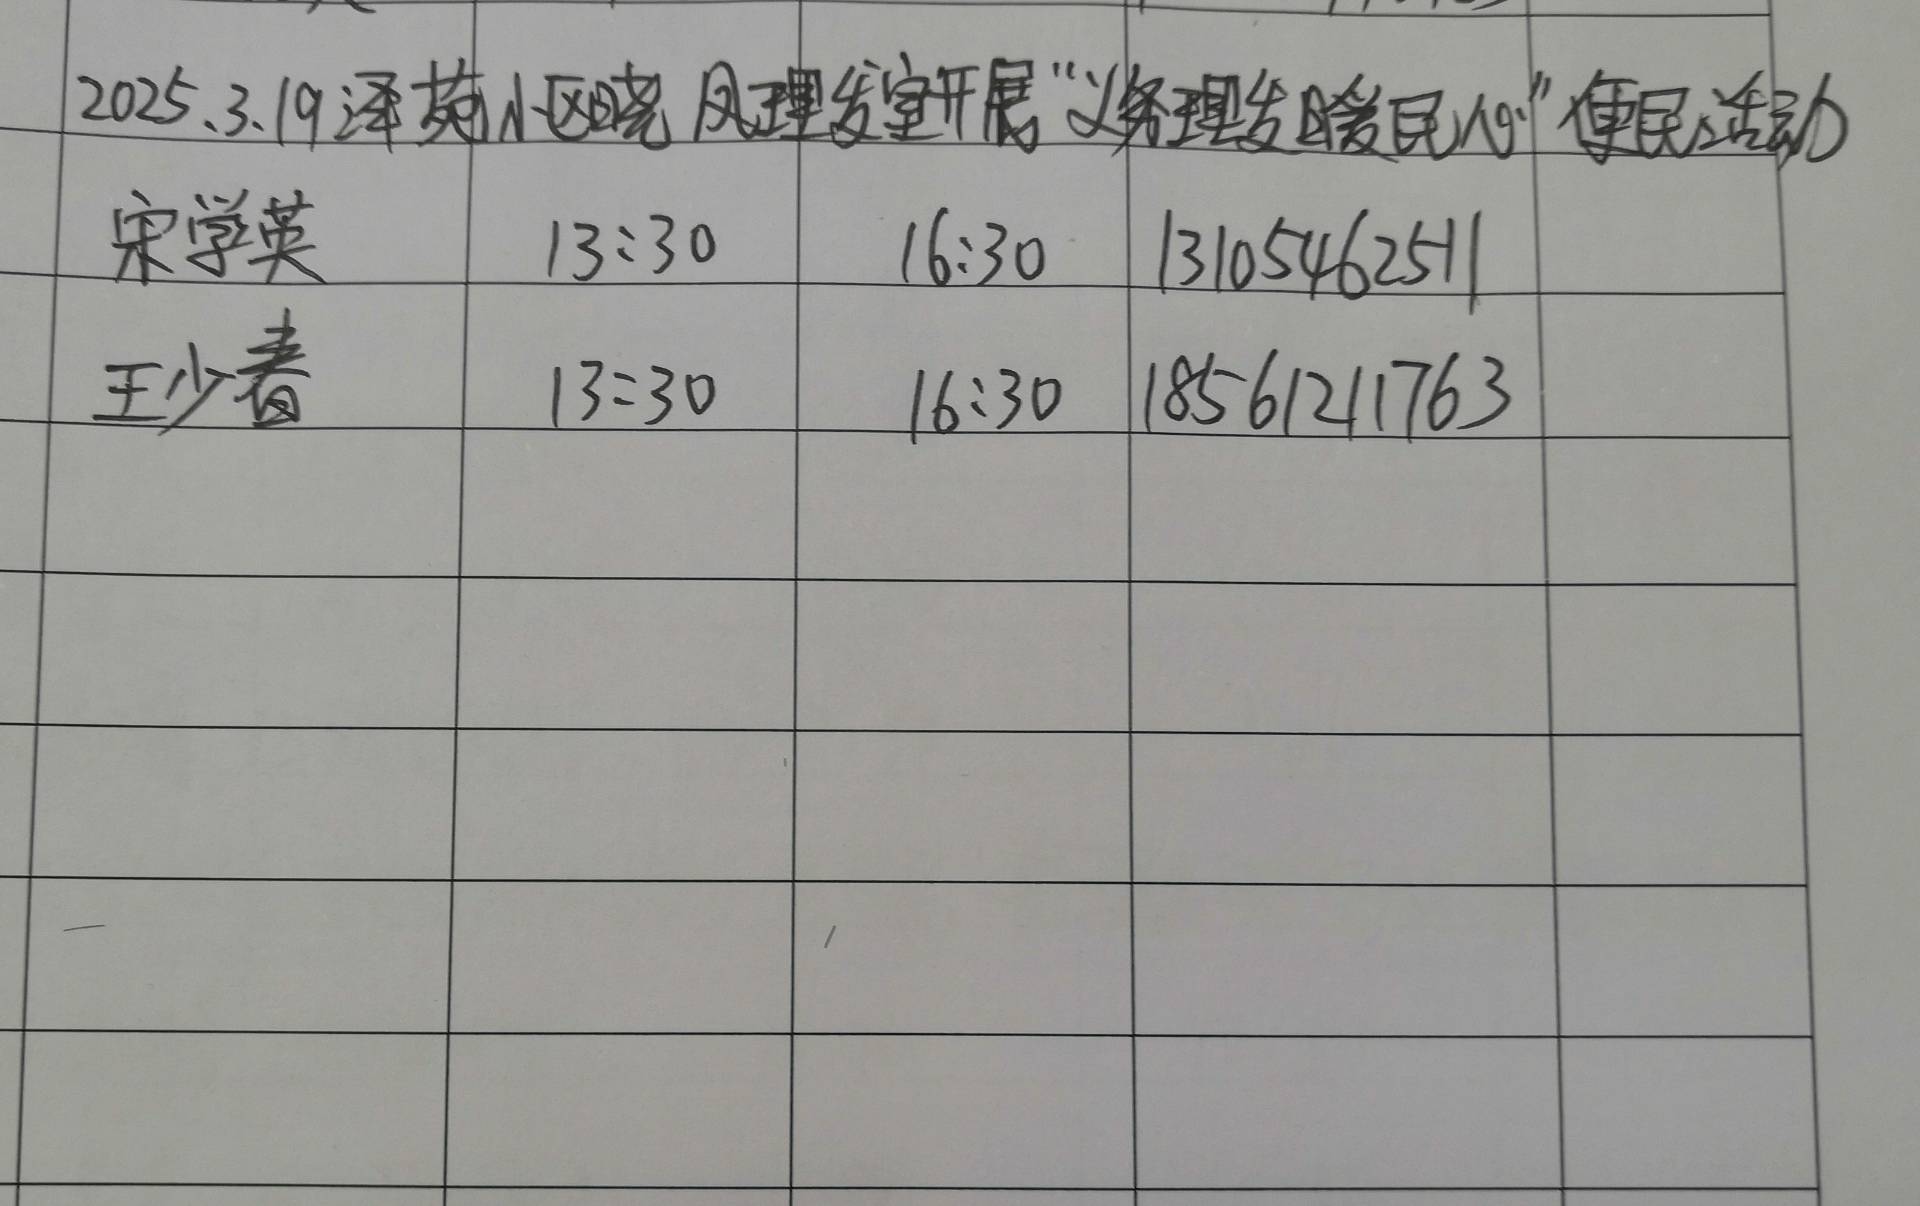 2025.3.19泽苑小区晓风理发室开展“义务理发暖民心”便民活动
宋学英 13:30 16:30 13105462511
王少春 13:30 16:30 18561211763